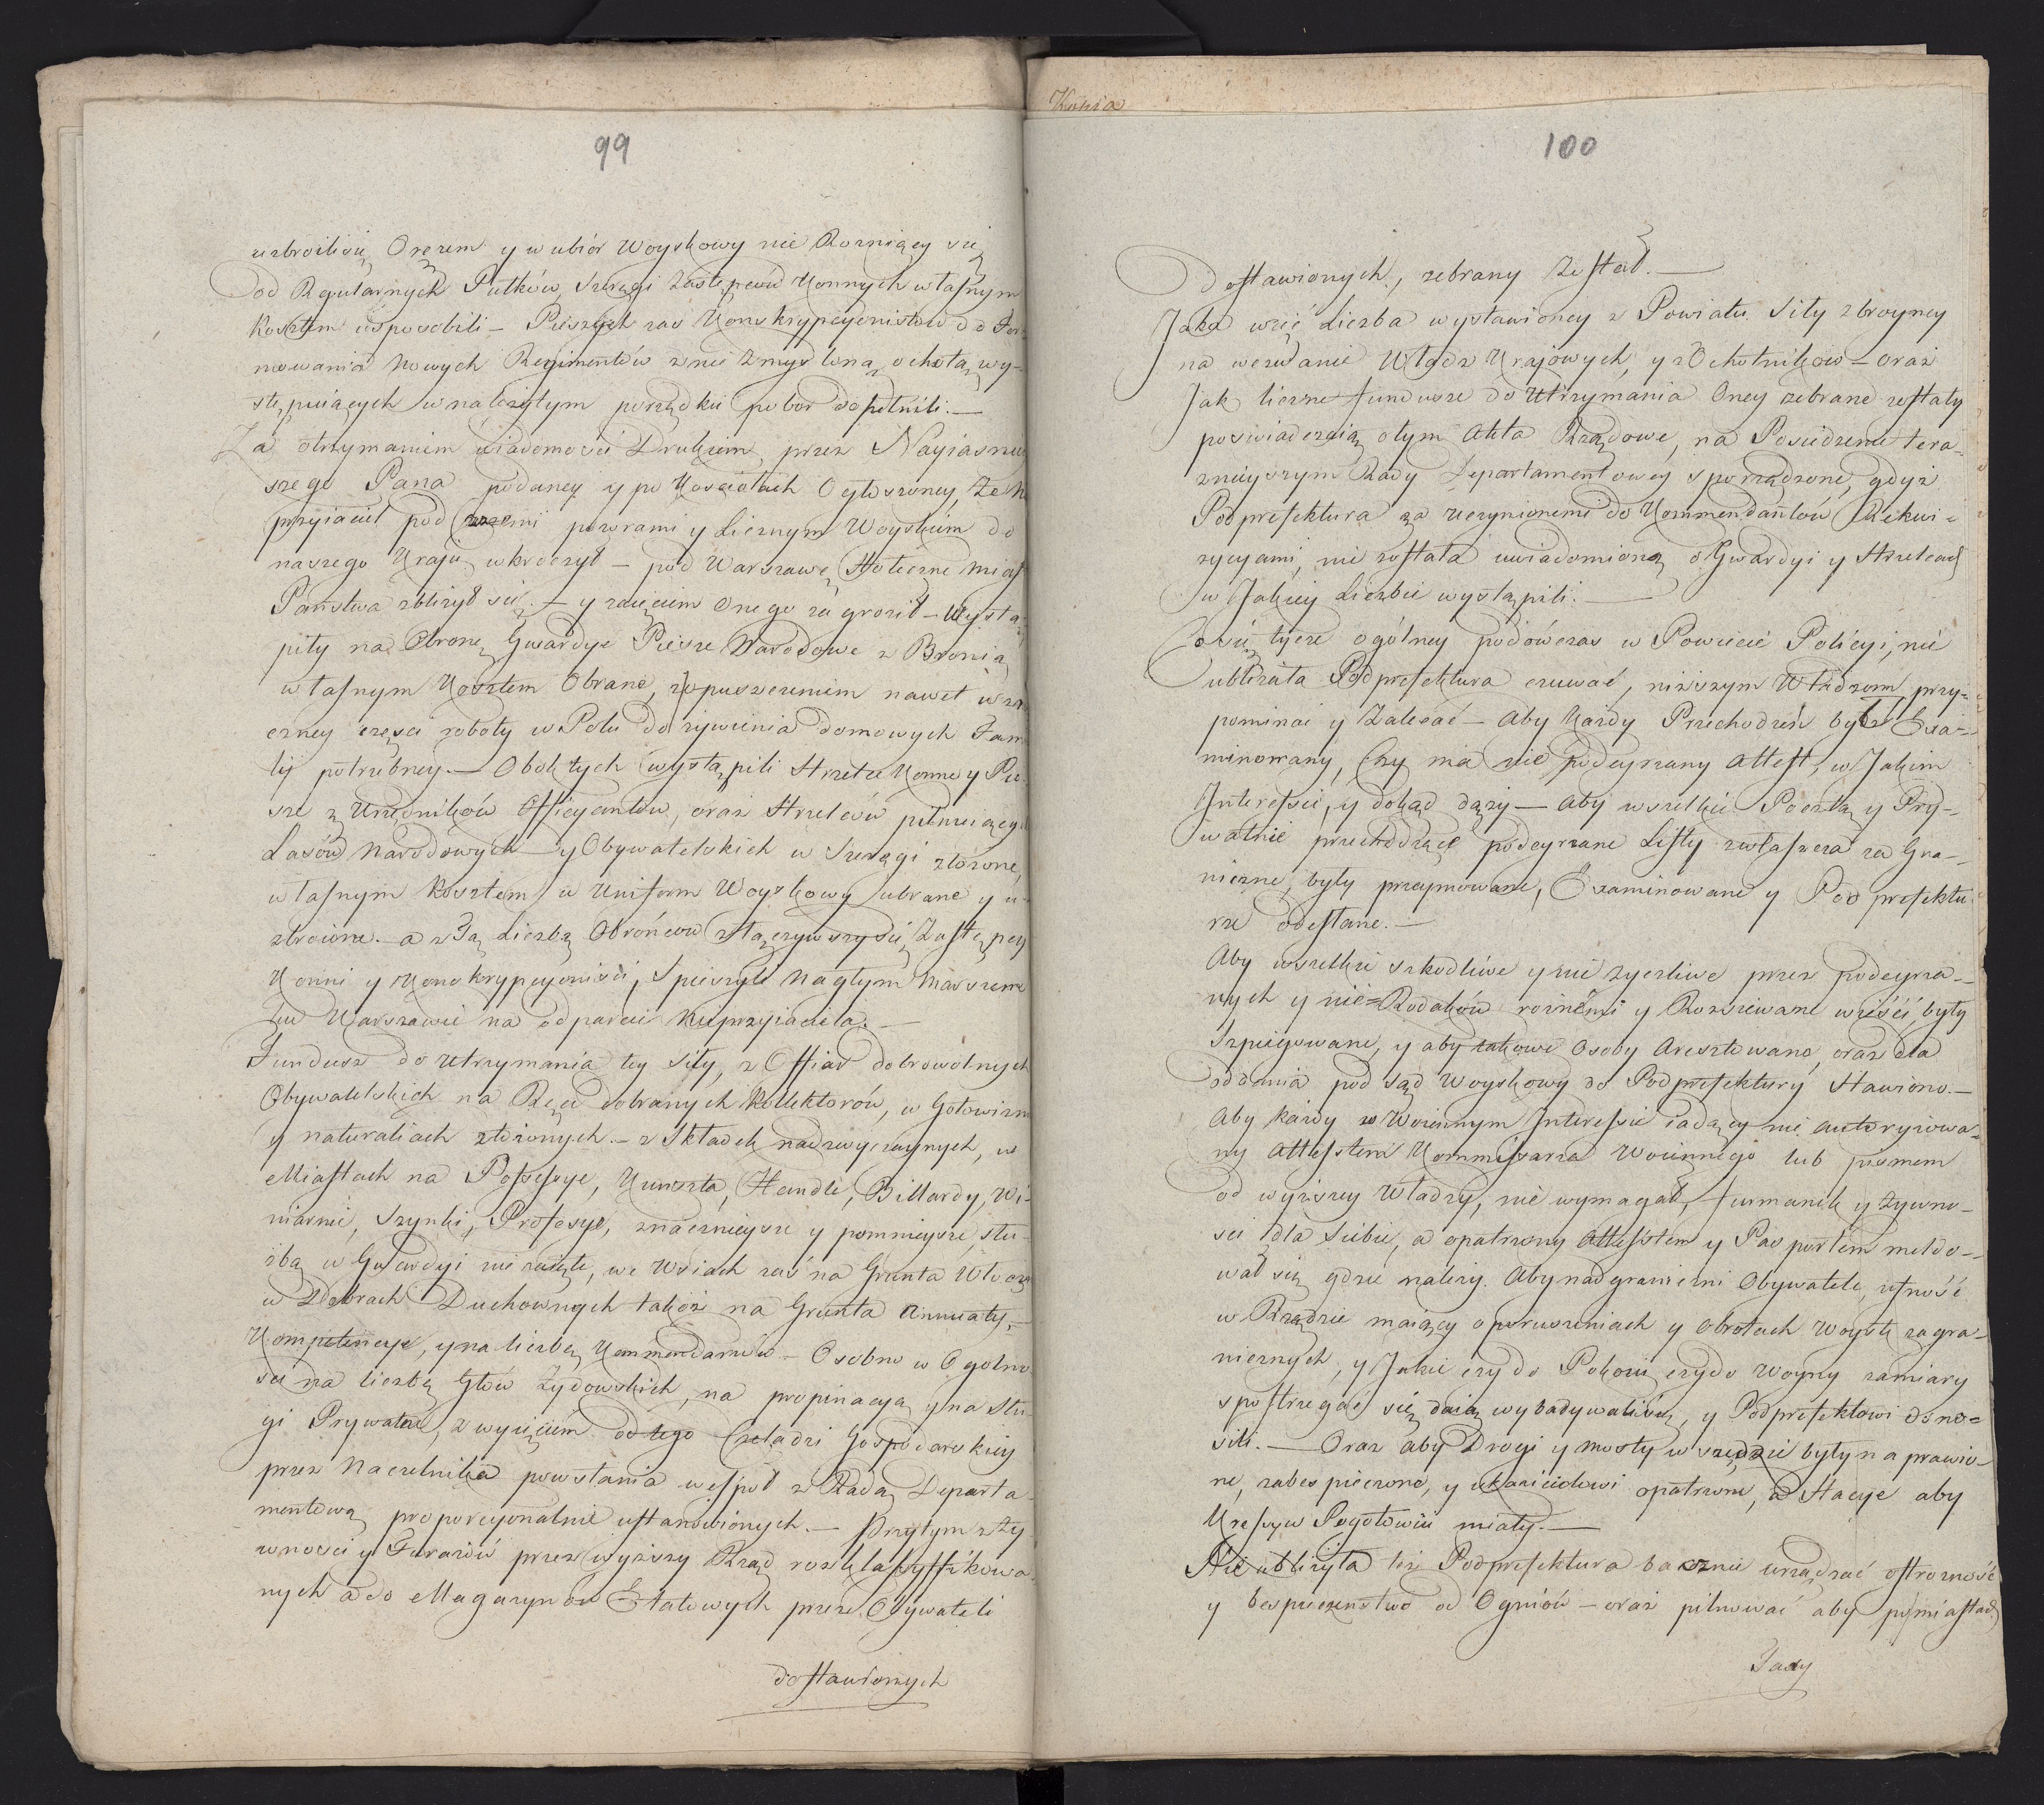 99
uzbroiliśię Orężem y w ubiór Woyskowy nie Roźniący się
od Regularnych Pułków, Szeregi Zastępcow Konnych własnym
Kosztem usposobili – Pieszych zas Konskrypcyonistow do For-
mowania Nowych Regimentów z nie zmysloną ochotą wy-
stępuiących w należytym porządku pobor dopełnili. —
Za otrzymaniem wiadomości Drukiem, przez Nayiasniey
szego Pana podaney y po Kosciołach Ogłoszoney, że Ne
przyiaciel pod pozorami y Licznym Woyskiem do
naszego Kraju wkroczył – pod Warszawę Stołeczne Miast
Państwa zbliżył się – y zaięciem Onego za groził – Wystą-
piły na Obronę Gwardye Piesze Narodowe z Bronią
własnym Kosztem Obrane, z opuszczeniem nawet w zna
czney części roboty w Polu do żywienia domowych Fami
lij potrzebney. — Obok tych wystąpili Strzelce Konne y Pie
sze z Urzędników Officyantów, oraz Strzelców pilnuiących
Lasów Narodowych – y Obywatelskich w Szeregi złożone,
własnym Kosztem w Uniform Woyskowy ubrane y u-
zbroione. – a z Tą Liczbą Obrońcow złączywszy się Zastępcy
Konni y Konskrypcyoniści, Spieszyli Nagłym Marszem
Ku Warszawie na odparcie Nieprzyiaciela. —
Fundusz do Utrzymania tey Siły, z Offiar dobrowolnych
Obywatelskich na Ręce dobranych Kollektorów, w Gotowiznie
y naturaliach złożonych. – z Składek nadzwyczaynych, w
Miastach na Possessye, Kunszta, Handle, Billardy, Wi-
niarnie, Szynki, Professye, znacznieysze y pomnieysze, słu-
żbą w Gwardyi nie zaięte, we Wsiach zaś na Grunta Włościań
w Dobrach Duchownych takoż na Grunta Annuaty, –
Kompetencye, y na liczbę Kommendarzów – Osobno w Ogolno
sci na liczbę Głów Żydowskich, na propinacyą y na Słu
gi Prywatne, z wyięciem od tego Czeladzi Gospodarskiey
przez Naczelnika powstania wespoł z Radą Departa
mentową proporcyonalnie ustanowionych. — Przytym z Ży
wności y Furażów przez wyższy Rząd rozklassyffikowa
nych a do Magazynów Etatowych przez Obywateli
dostawionych
Kopia
100
Dostawionych, zebrany został. —
Jaka więc Liczba wystawioney z Powiatu Siły zbroyney
na wezwanie Władz Krajowych, y z Ochotników – oraz
Jak liczne fundusze do Utrzymania Oney zebrane zostały
poswiadczaią o tym Akta Rządowe, na Posiedzeniu tera-
znieyszym Rady Departamentowey sporządzone, gdyż
Podprefektura za uczynionemi do Kommendantów Rekwi-
zycyami, nie została uwiadomioną o Gwardyi y Strzelcach
w Jakiey Liczbie wystąpili. —
Co się tycze ogólney podówczas w Powiecie Policyi, nie
ubliżała Podprefektura czuwać, niższym Władzom przy-
pominać y Zalecać – Aby Każdy Przechodzeń był Exa-
minowany, Czy ma nie podeyrzany Attest, w Jakim
Interessie, y dokąd dąży – aby wszelkie Pocztą y Pry-
watnie przechodzące podeyrzane Listy zwłaszcza za Gra-
niczne, były przeymowane, Examinowane y Podprefektu
rze odesłane. —
Aby wszelkie szkodliwe y nie życzliwe przez podeyrza-
nych y nie=Rodaków roznemi y Rozsiewane wieści, były
Szpiegowane, y aby takowe Osoby Aresztowano, oraz dla
oddania pod Sąd Woyskowy do Podprefektury Stawiono. —
Aby każdy w Woiennym Interessie iadący nie autoryzowa-
ny Attestem Kommissarza Woiennego lub pismem
od wyższey Władzy, nie wymagał, furmanek y żywno-
sci dla siebie, a opatrzony Attestem y Pasportem meldo-
wał się gdzie należy. Aby nadgraniczni Obywatele, ufność
w Rządzie maiący o poruszeniach y Obrotach Woysk zagra-
nicznych, y Jakie czy do Pokoiu czy do Woyny zamiary
spostrzegać się daią wybadywaliśię, y Podprefektowi dono-
sili. — Oraz aby Drogi y mosty wszędzie były naprawio-
ne, zabespieczone, y opatrzone, a Stacye aby
Kresy w Pogotowiu miały. —
Nie ubliżyła też Podprefektura bacznie urządzać ostrozność
y bespieczenstwo od Ogniów – oraz pilnować aby po miastach
Taxy